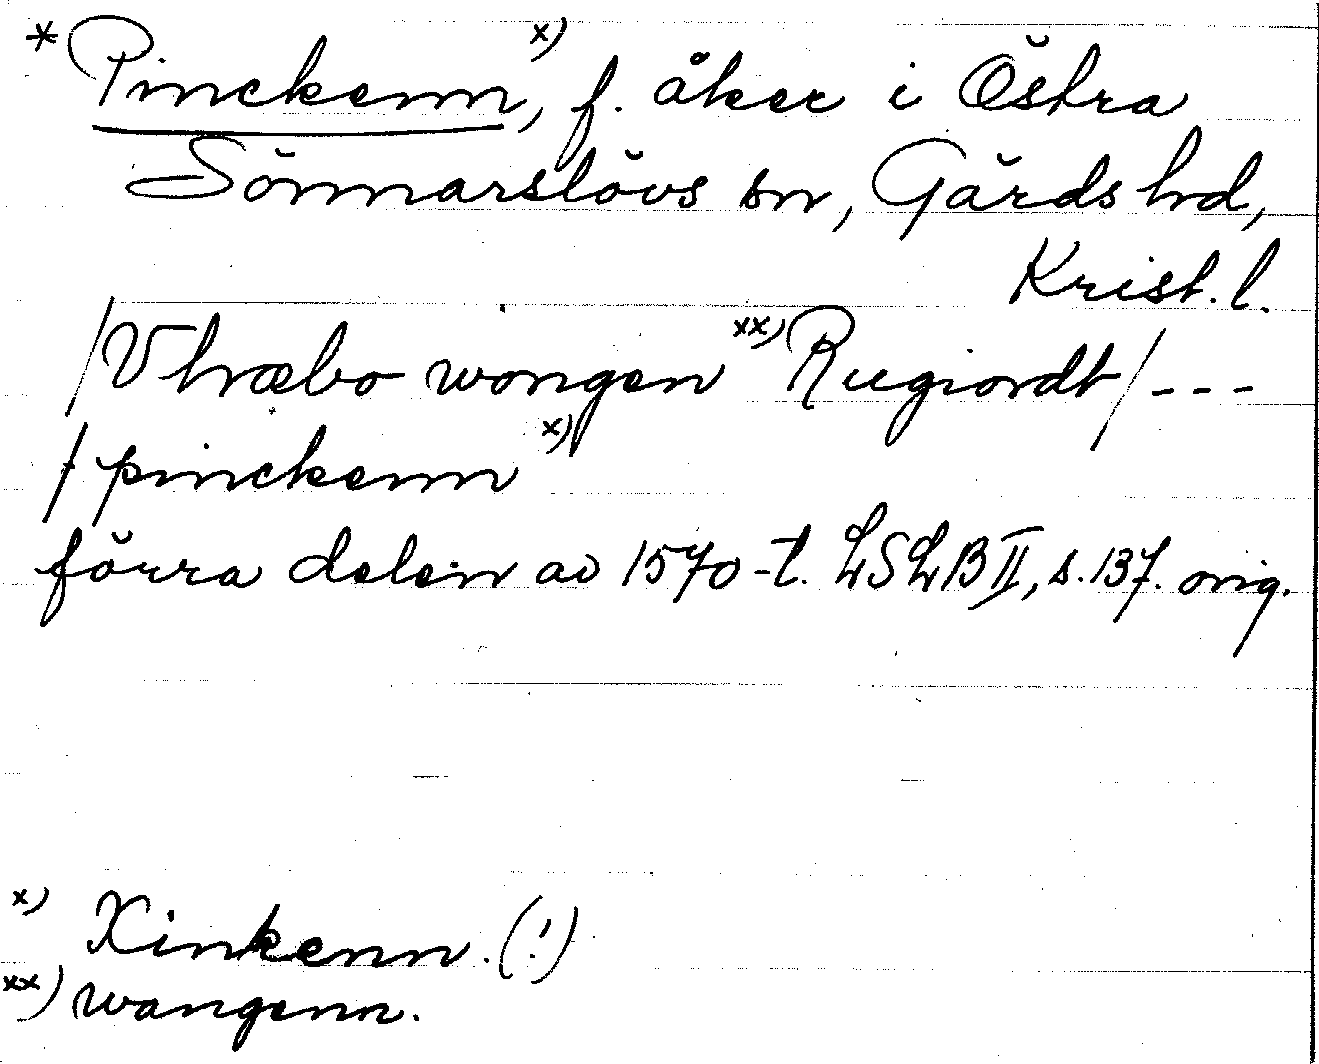 * Pinckenn x), f. åker i Östra
Sönnarslövs sn, Gärds hd,
Krist. l.
/Vhræbo wongen xx) Rugiordt/ ---
/ pinckenn x)
förra delen av 1570-t. LSLB II, s. 137. orig.
x) Xinkenn. (!)
xx) wangenn.